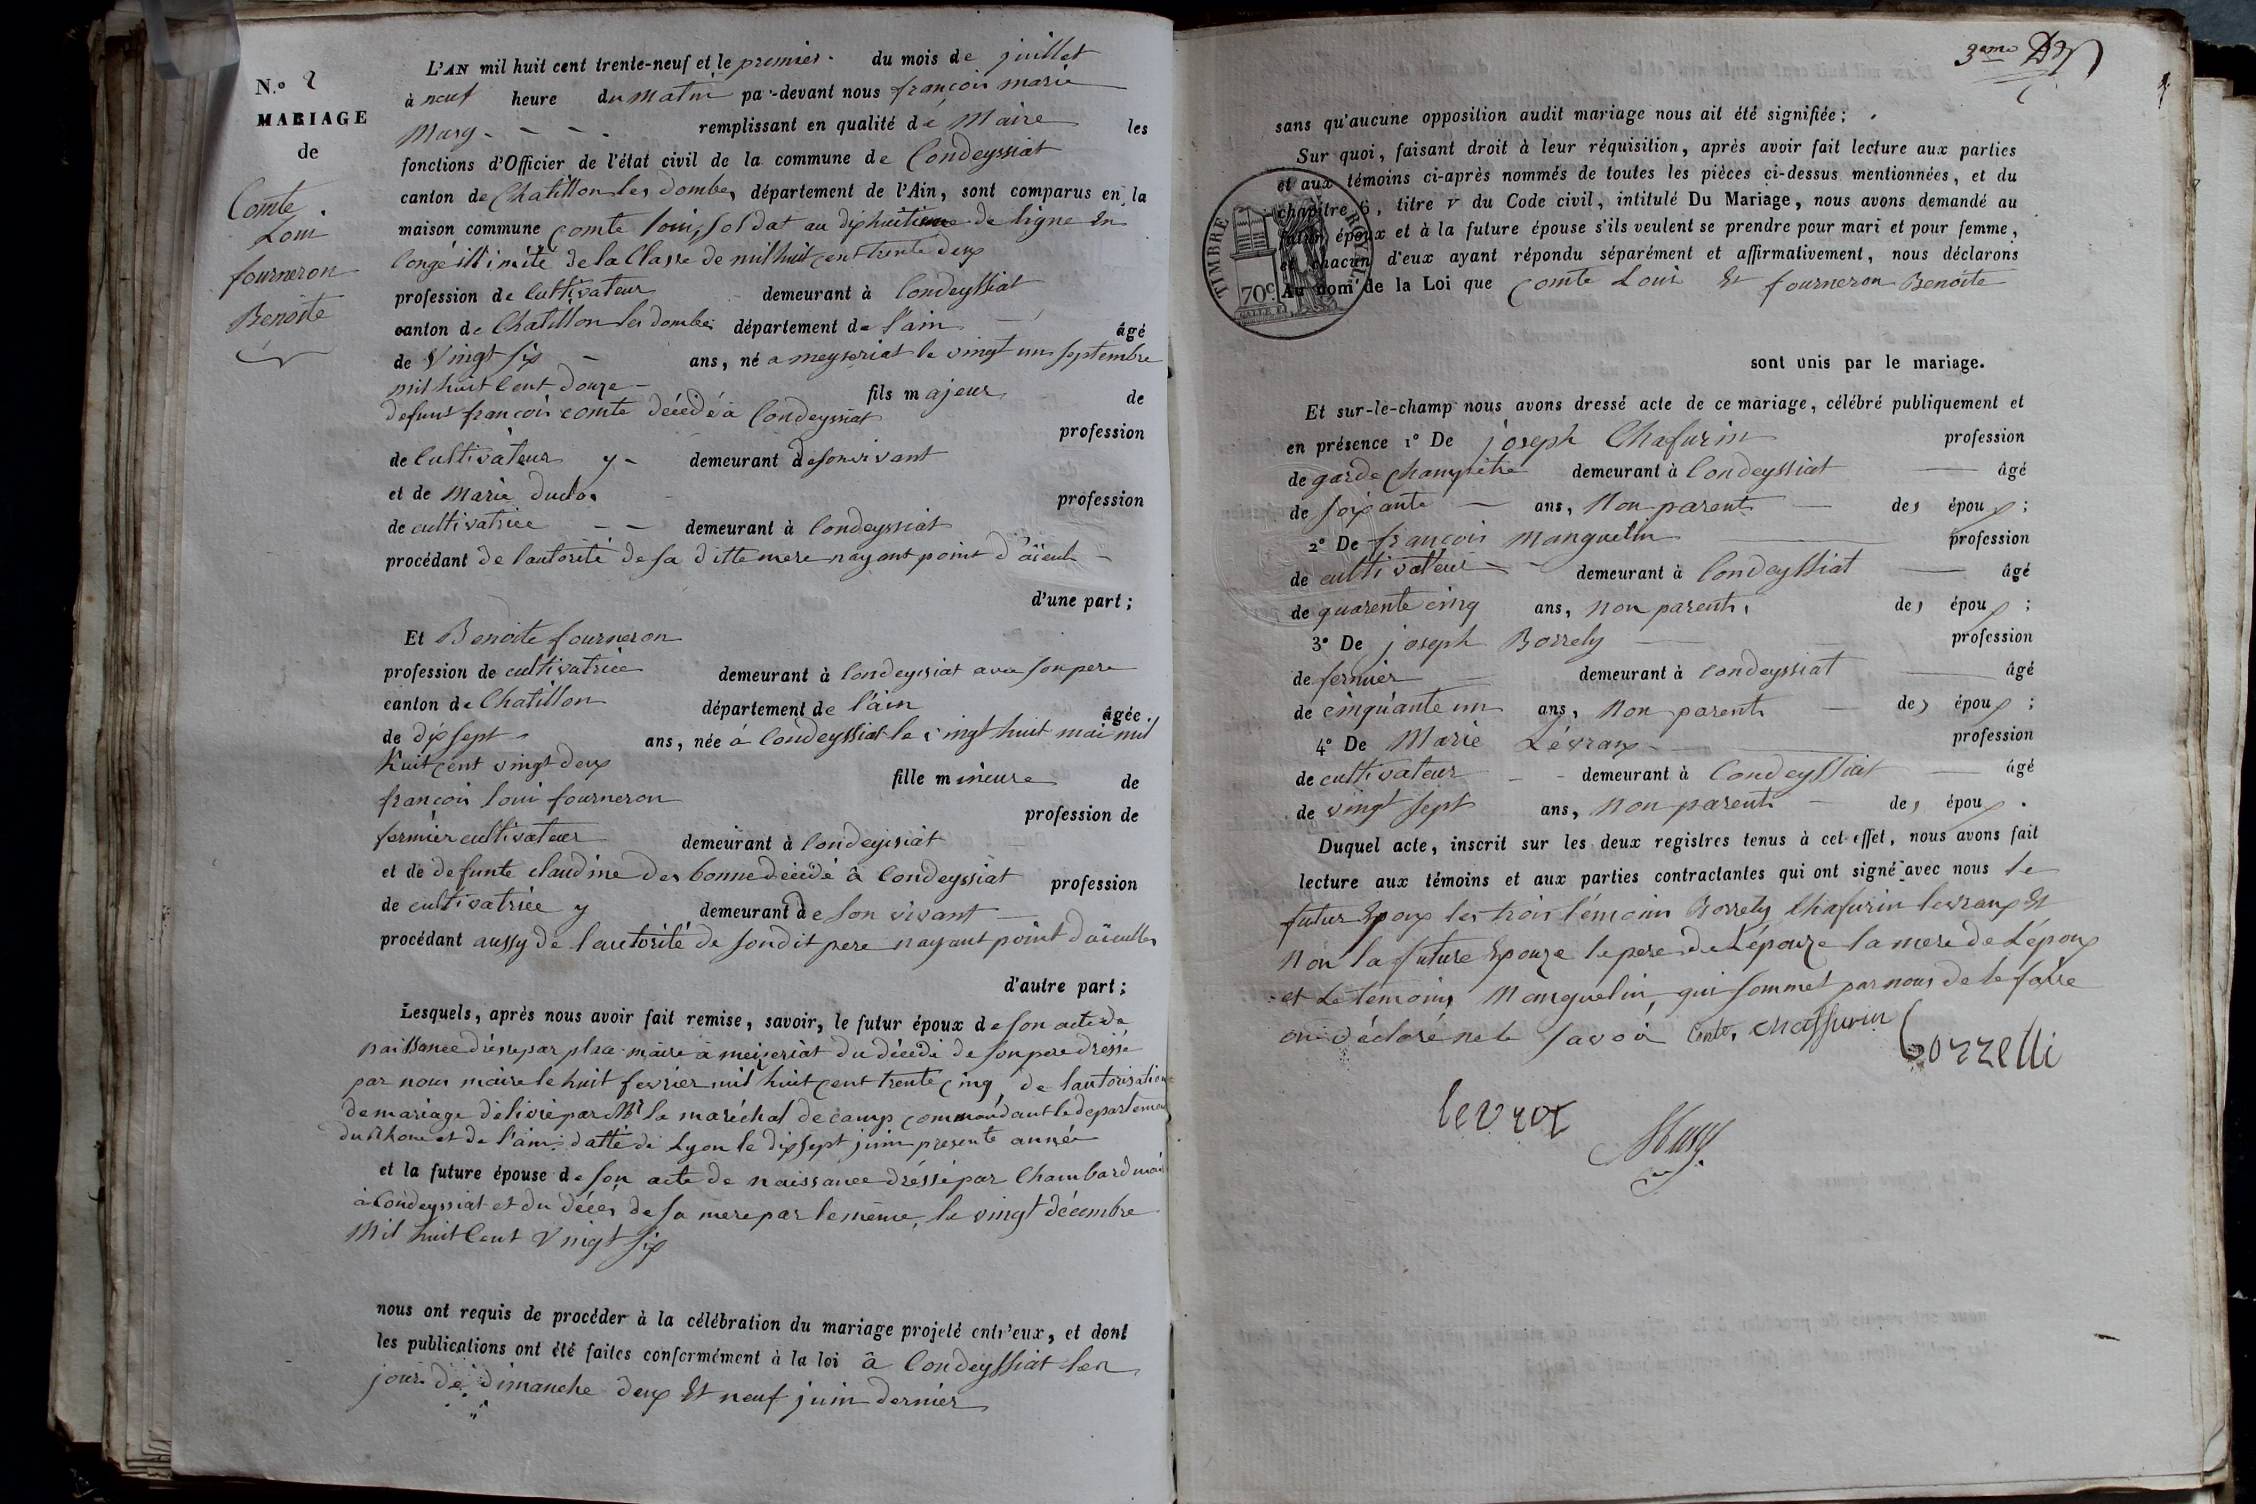 N.o 2
MARIAGE
de
Comte
Loui
fourneron
Benoite
L'AN mil huit cent trente-neuf et le premier. du mois de juillet
à neuf heure du matin par-devant nous françois marie
Mary remplissant en qualité de Maire les
fonctions d'Officier de l'état civil de la commune de Condeyssiat
canton de Chatillon les dombes, département de l'Ain, sont comparus en la
maison commune comte loui, soldat au dixhuitieme de ligne En
Congé illimité de la Classe de mil huit cent trente deux
profession de Cultivateur demeurant à Condeyssiat
canton de Chatillon les dombes département de l'ain âgé
de Vingt six ans, né a meyseriat le vingt un septembre
mil huit Cent douze fils majeur de
defunt françois comte décédé à Condeyssiat
profession
de Cultivateur y demeurant de son vivant
et de Marie duclos profession
de cultivatrice demeurant à Condeyssiat
procédant de l'autorité de sa ditte mere nayant point d'aïeul
d'une part ;
Et Benoite fourneron
profession de cultivatrice demeurant à Condeyssiat avec son pere
canton de Chatillon département de l'ain âgée
de dix sept ans, née à Condeyssiat le vingt huit mai mil
huit cent vingt deux
fille mineure de
françois loui fourneron
profession de
fermier cultivateur demeurant à Condeyssiat
et de defunte claudine des bonne décédé à Condeyssiat profession
de cultivatrice y demeurant de son vivant
procédant aussy de l'autorité de son dit pere nayant point d'aïeulles
d'autre part ;
Lesquels, après nous avoir fait remise, savoir, le futur époux de son acte de
naissance dressé par maire à meyseriat du décédé de son pere dressé
par nous maire le huit fevrier mil huit cent trente cinq, de l'autorisation
de mariage délivré par Mr le maréchal de camp commandant le departement
du Rhone et de l'ain datté de Lyon le dix sept juin presente année
et la future épouse de son acte de naissance dréssé par Chambard maire
à Condeyssiat et du décés de sa mere par le même, le vingt décembre
Mil huit Cent Vingt six
nous ont requis de procéder à la célébration du mariage projeté entr'eux, et dont
les publications ont été faites conformément à la loi à Condeyssiat les
jours de dimanche deux Et neuf juin dernier
3eme
sans qu'aucune opposition audit mariage nous ait été signifiée ;
Sur quoi, faisant droit à leur réquisition, après avoir fait lecture aux parties
et aux témoins ci-après nommés de toutes les pièces ci-dessus mentionnées, et du
chapitre 6, titre v du Code civil, intitulé Du Mariage, nous avons demandé au
futur époux et à la future épouse s'ils veulent se prendre pour mari et pour femme,
et chacun d'eux ayant répondu séparément et affirmativement, nous déclarons
Au nom de la Loi que comte Loui Et fourneron Benoite
TIMBRE ROYAL
70c.
sont unis par le mariage.
Et sur-le-champ nous avons dressé acte de ce mariage, célébré publiquement et
en présence 1o De joseph Chafurin profession
de garde champêtre demeurant à Condeyssiat âgé
de soixante ans, Non parent des époux ;
2o De françois Manguelin profession
de cultivateur demeurant à Condeyssiat âgé
de quarente cinq ans, non parent, des époux ;
3o De joseph Borrely profession
de fermier demeurant à Condeyssiat âgé
de cinquante un ans, Non parent des époux ;
4o De Marie Lévrax profession
de cultivateur demeurant à Condeyssiat âgé
de vingt sept ans, Non parent des époux.
Duquel acte, inscrit sur les deux registres tenus à cet effet, nous avons fait
lecture aux témoins et aux parties contractantes qui ont signé avec nous le
futur Epoux les trois témoins Borrely Chafurin levraux Et
Non la future Epouze le pere de L'épouze la mere de L'époux
et Le temoins Manguelin, qui sommet par nous de le faire
on déclaré ne le savoir Conte, chaffurin
borrelli
levrox
Mary